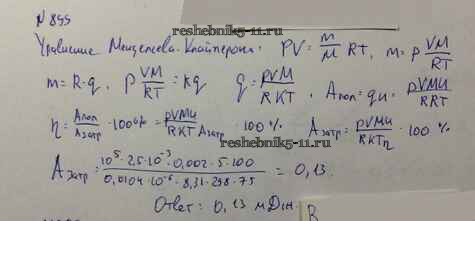 № 895
reshebnik5-11.ru
Уравнение Менделеева-Клайперона. PV = m/M RT, m = p VM/RT
m = k·q. p VM/RT = kq q = pVM/RKT. Aпол = qu. pVMu/RRT
η = Aпол/Aзатр · 100% = pVMu/RKT Aзатр · 100% Aзатр = pVMu/RKTη · 100%
reshebnik5-11.ru
Aзатр: 10⁵·25·10⁻³·0,002·5·100 / 0,0104·10⁻⁶·8,31·298·75 = 0,13.
Ответ: 0,13 мДж.